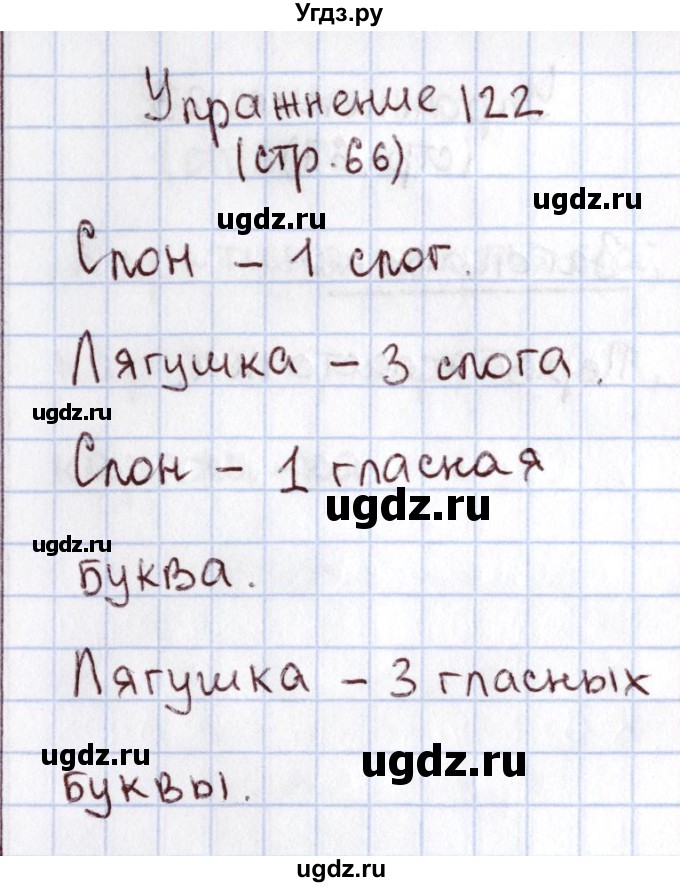 Угдз.ру
Упражнение 122
(стр. 66)
ugdz.ru
Слон – 1 слог.
Лягушка – 3 слога.
ugdz.ru
Слон – 1 гласная
ugdz.ru
ugdz.ru
буква.
Лягушка – 3 гласных
ugdz.ru
ugdz.ru
буквы.
ugdz.ru